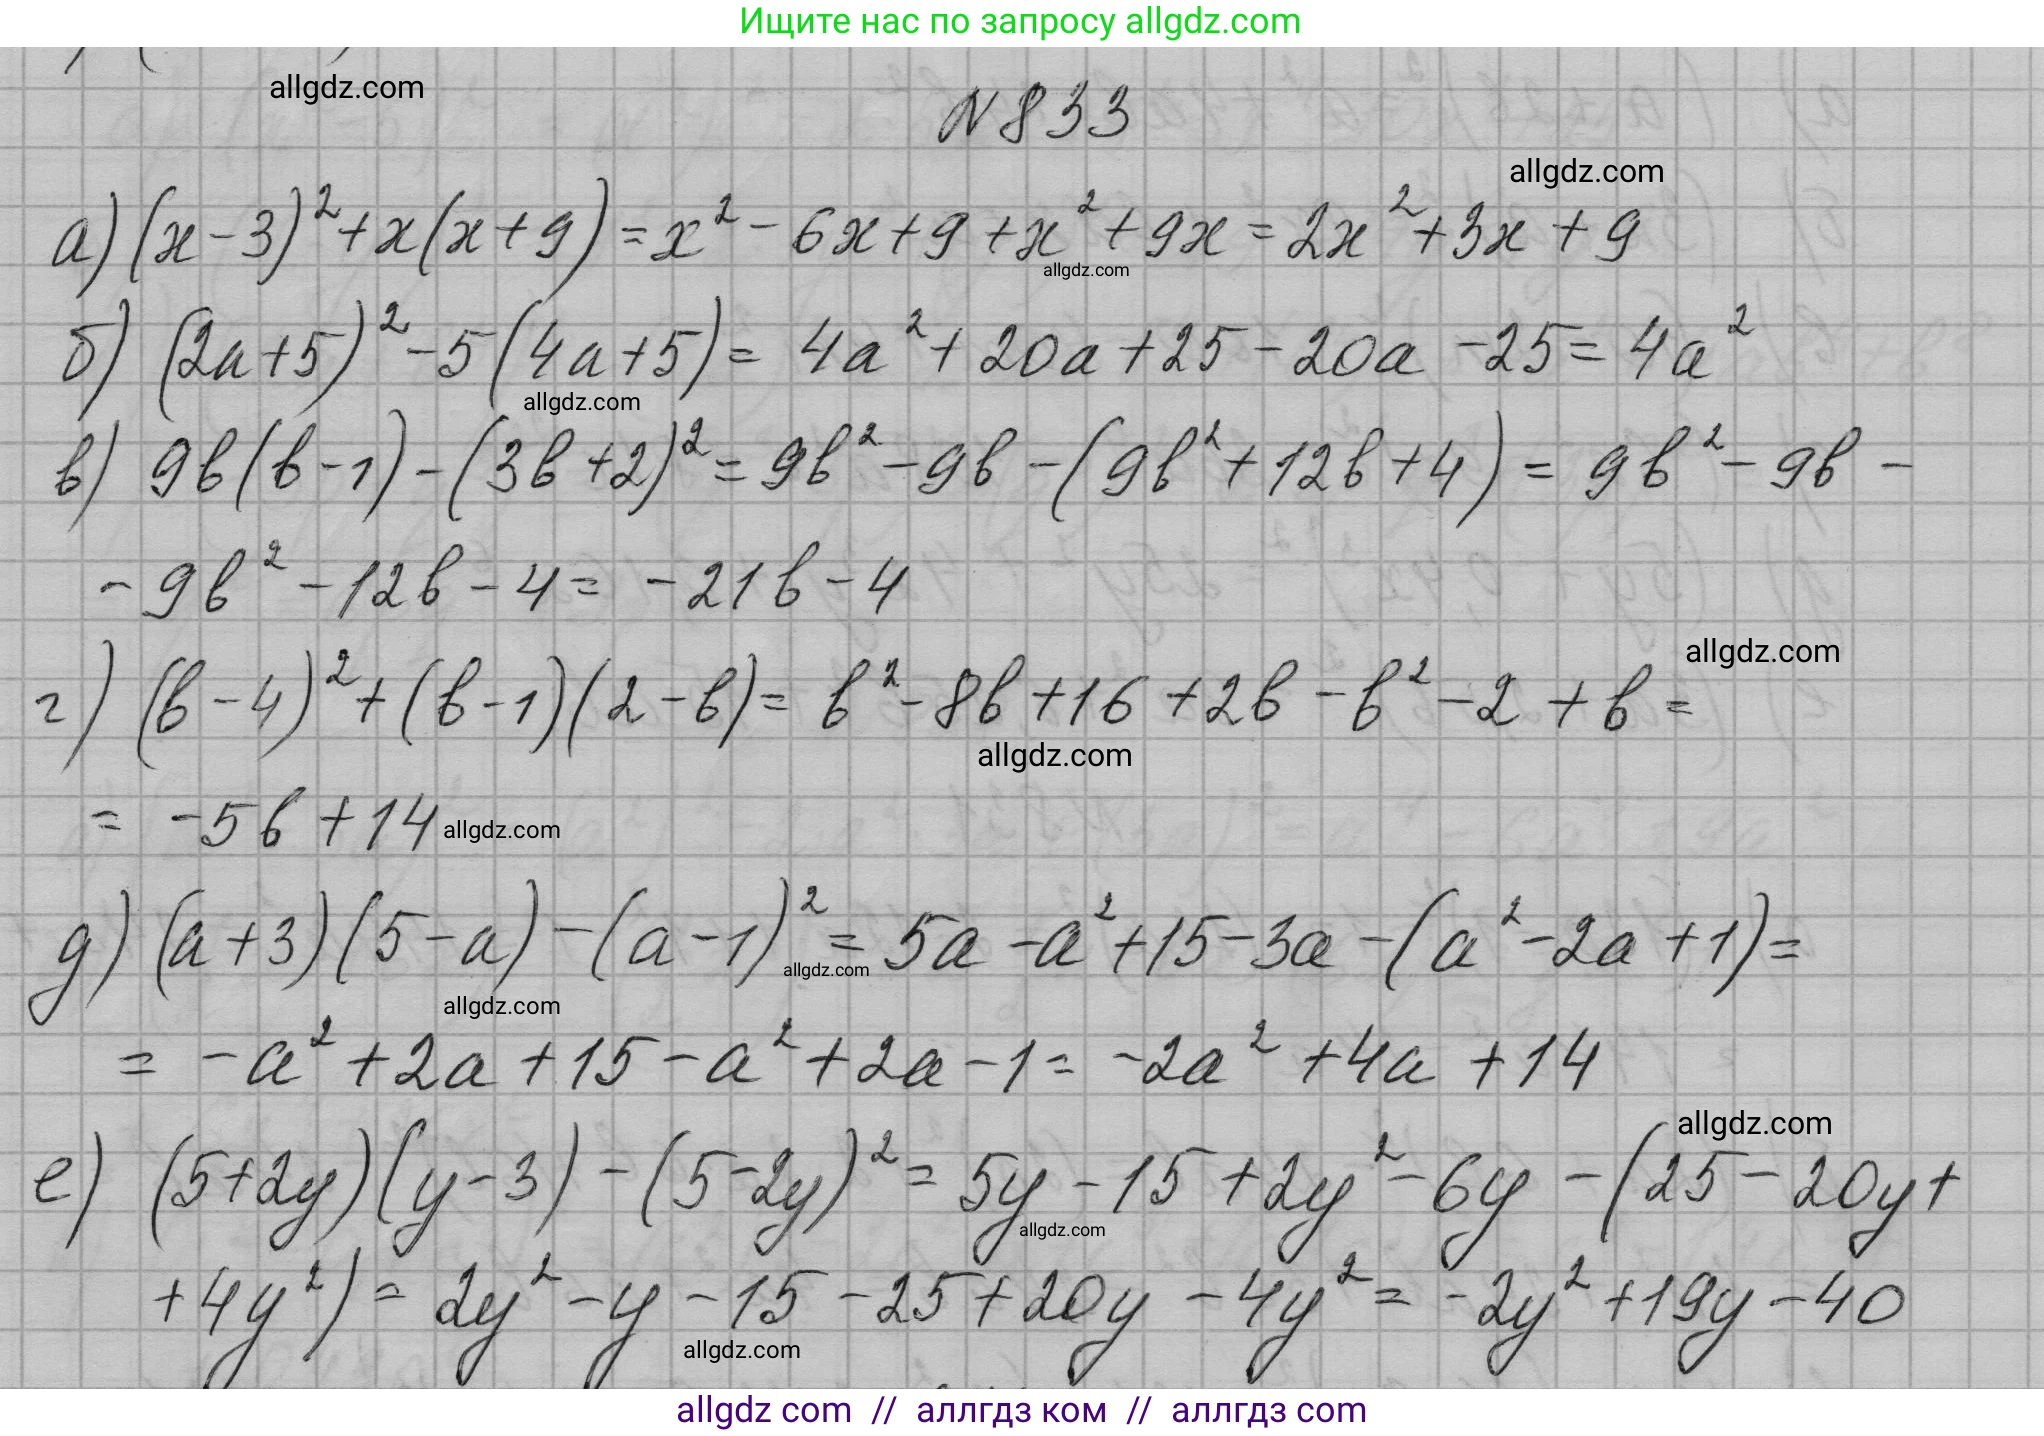 Ищите нас по запросу allgdz.com
allgdz.com
N833
allgdz.com
а) (x-3)²+x(x+9)=x²-6x+9+x²+9x=2x²+3x+9
allgdz.com
б) (2a+5)²-5(4a+5)=4a²+20a+25-20a-25=4a²
allgdz.com
в) 9b(b-1)-(3b+2)²=9b²-9b-(9b²+12b+4)=9b²-9b-
-9b²-12b-4=-21b-4
allgdz.com
г) (b-4)²+(b-1)(2-b)=b²-8b+16+2b-b²-2+b=
allgdz.com
=-5b+14
allgdz.com
д) (a+3)(5-a)-(a-1)²=5a-a²+15-3a-(a²-2a+1)=
allgdz.com
allgdz.com
=-a²+2a+15-a²+2a-1=-2a²+4a+14
allgdz.com
е) (5+2y)(y-3)-(5-2y)²=5y-15+2y²-6y-(25-20y+
allgdz.com
+4y²)=2y²-y-15-25+20y-4y²=-2y²+19y-40
allgdz.com
allgdz com // аллгдз ком // аллгдз com